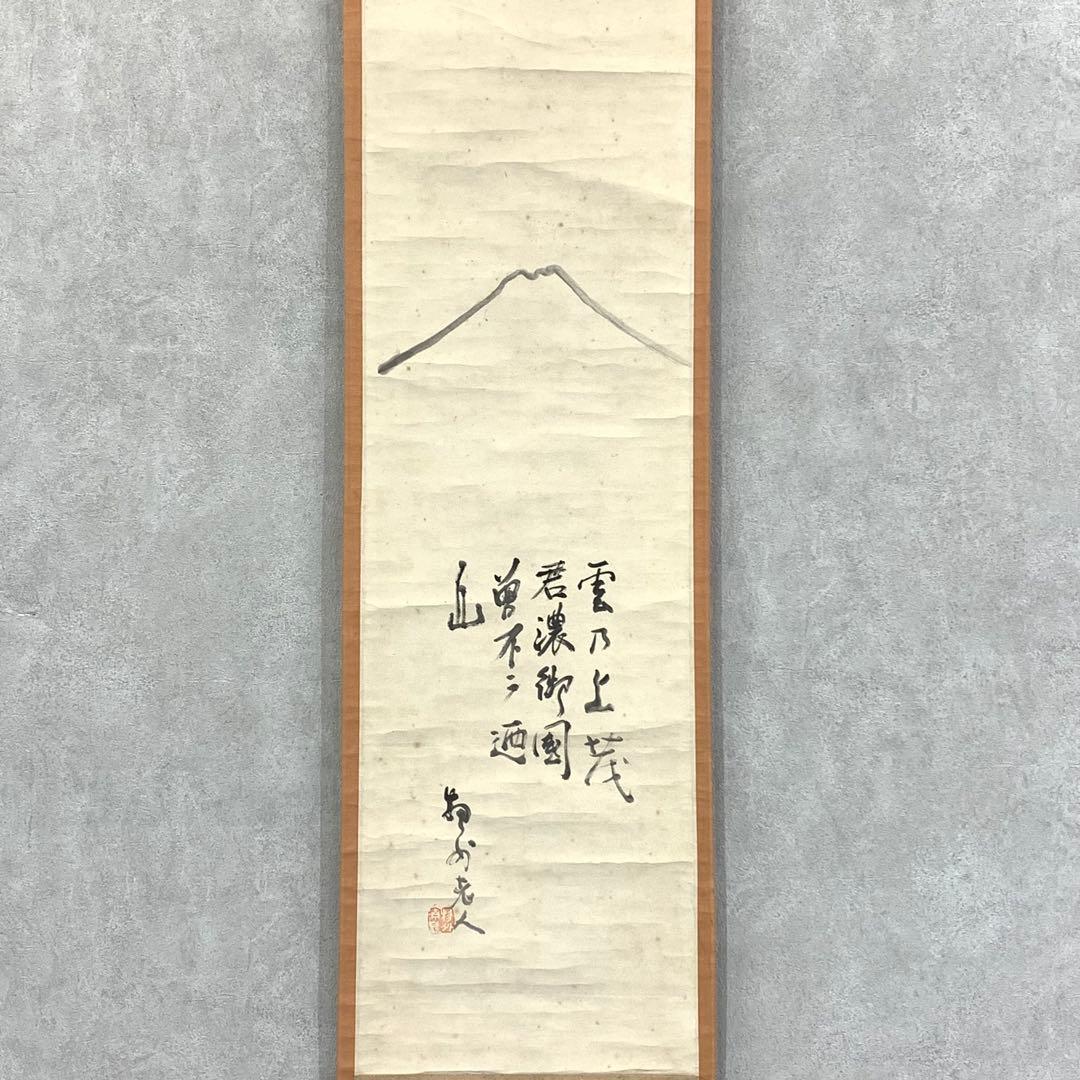 雲乃上茂
君濃御國
曽不二廼
山
老人